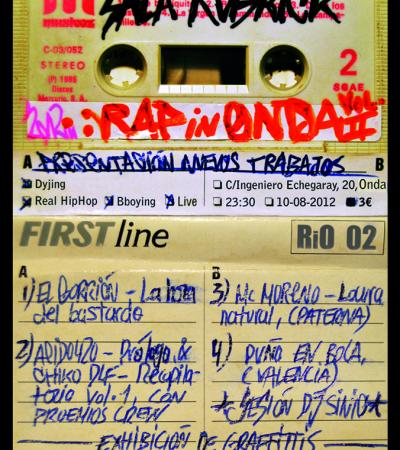 C-03/052
STEREO
(P) 1985
Discos
Mercurio, S.A.
2
SGAE
RAP iN ONDA II VOL.
A PRESENTASIÓN NUEVOS TRABAJOS B
Dyjing
C/Ingeniero Echegaray, 20,Onda
Real HipHop Bboying Live
23:30 10-08-2012 3€
FIRST line RiO 02
A
1) EL GORRIÓN - La hora
del bastardo
2) ADIDO420 - Prólogo &
CHIKO DLF - Recopila-
torio Vol. 1, CON
PROEMIOS CREW
B
3) Mc MORENO - Locura
natural, (PATERNA)
4) PUÑO EN BOCA,
(VALENCIA)
*SESIÓN DJ SINIO*
EXHIBICIÓN DE GRAFFITTIS